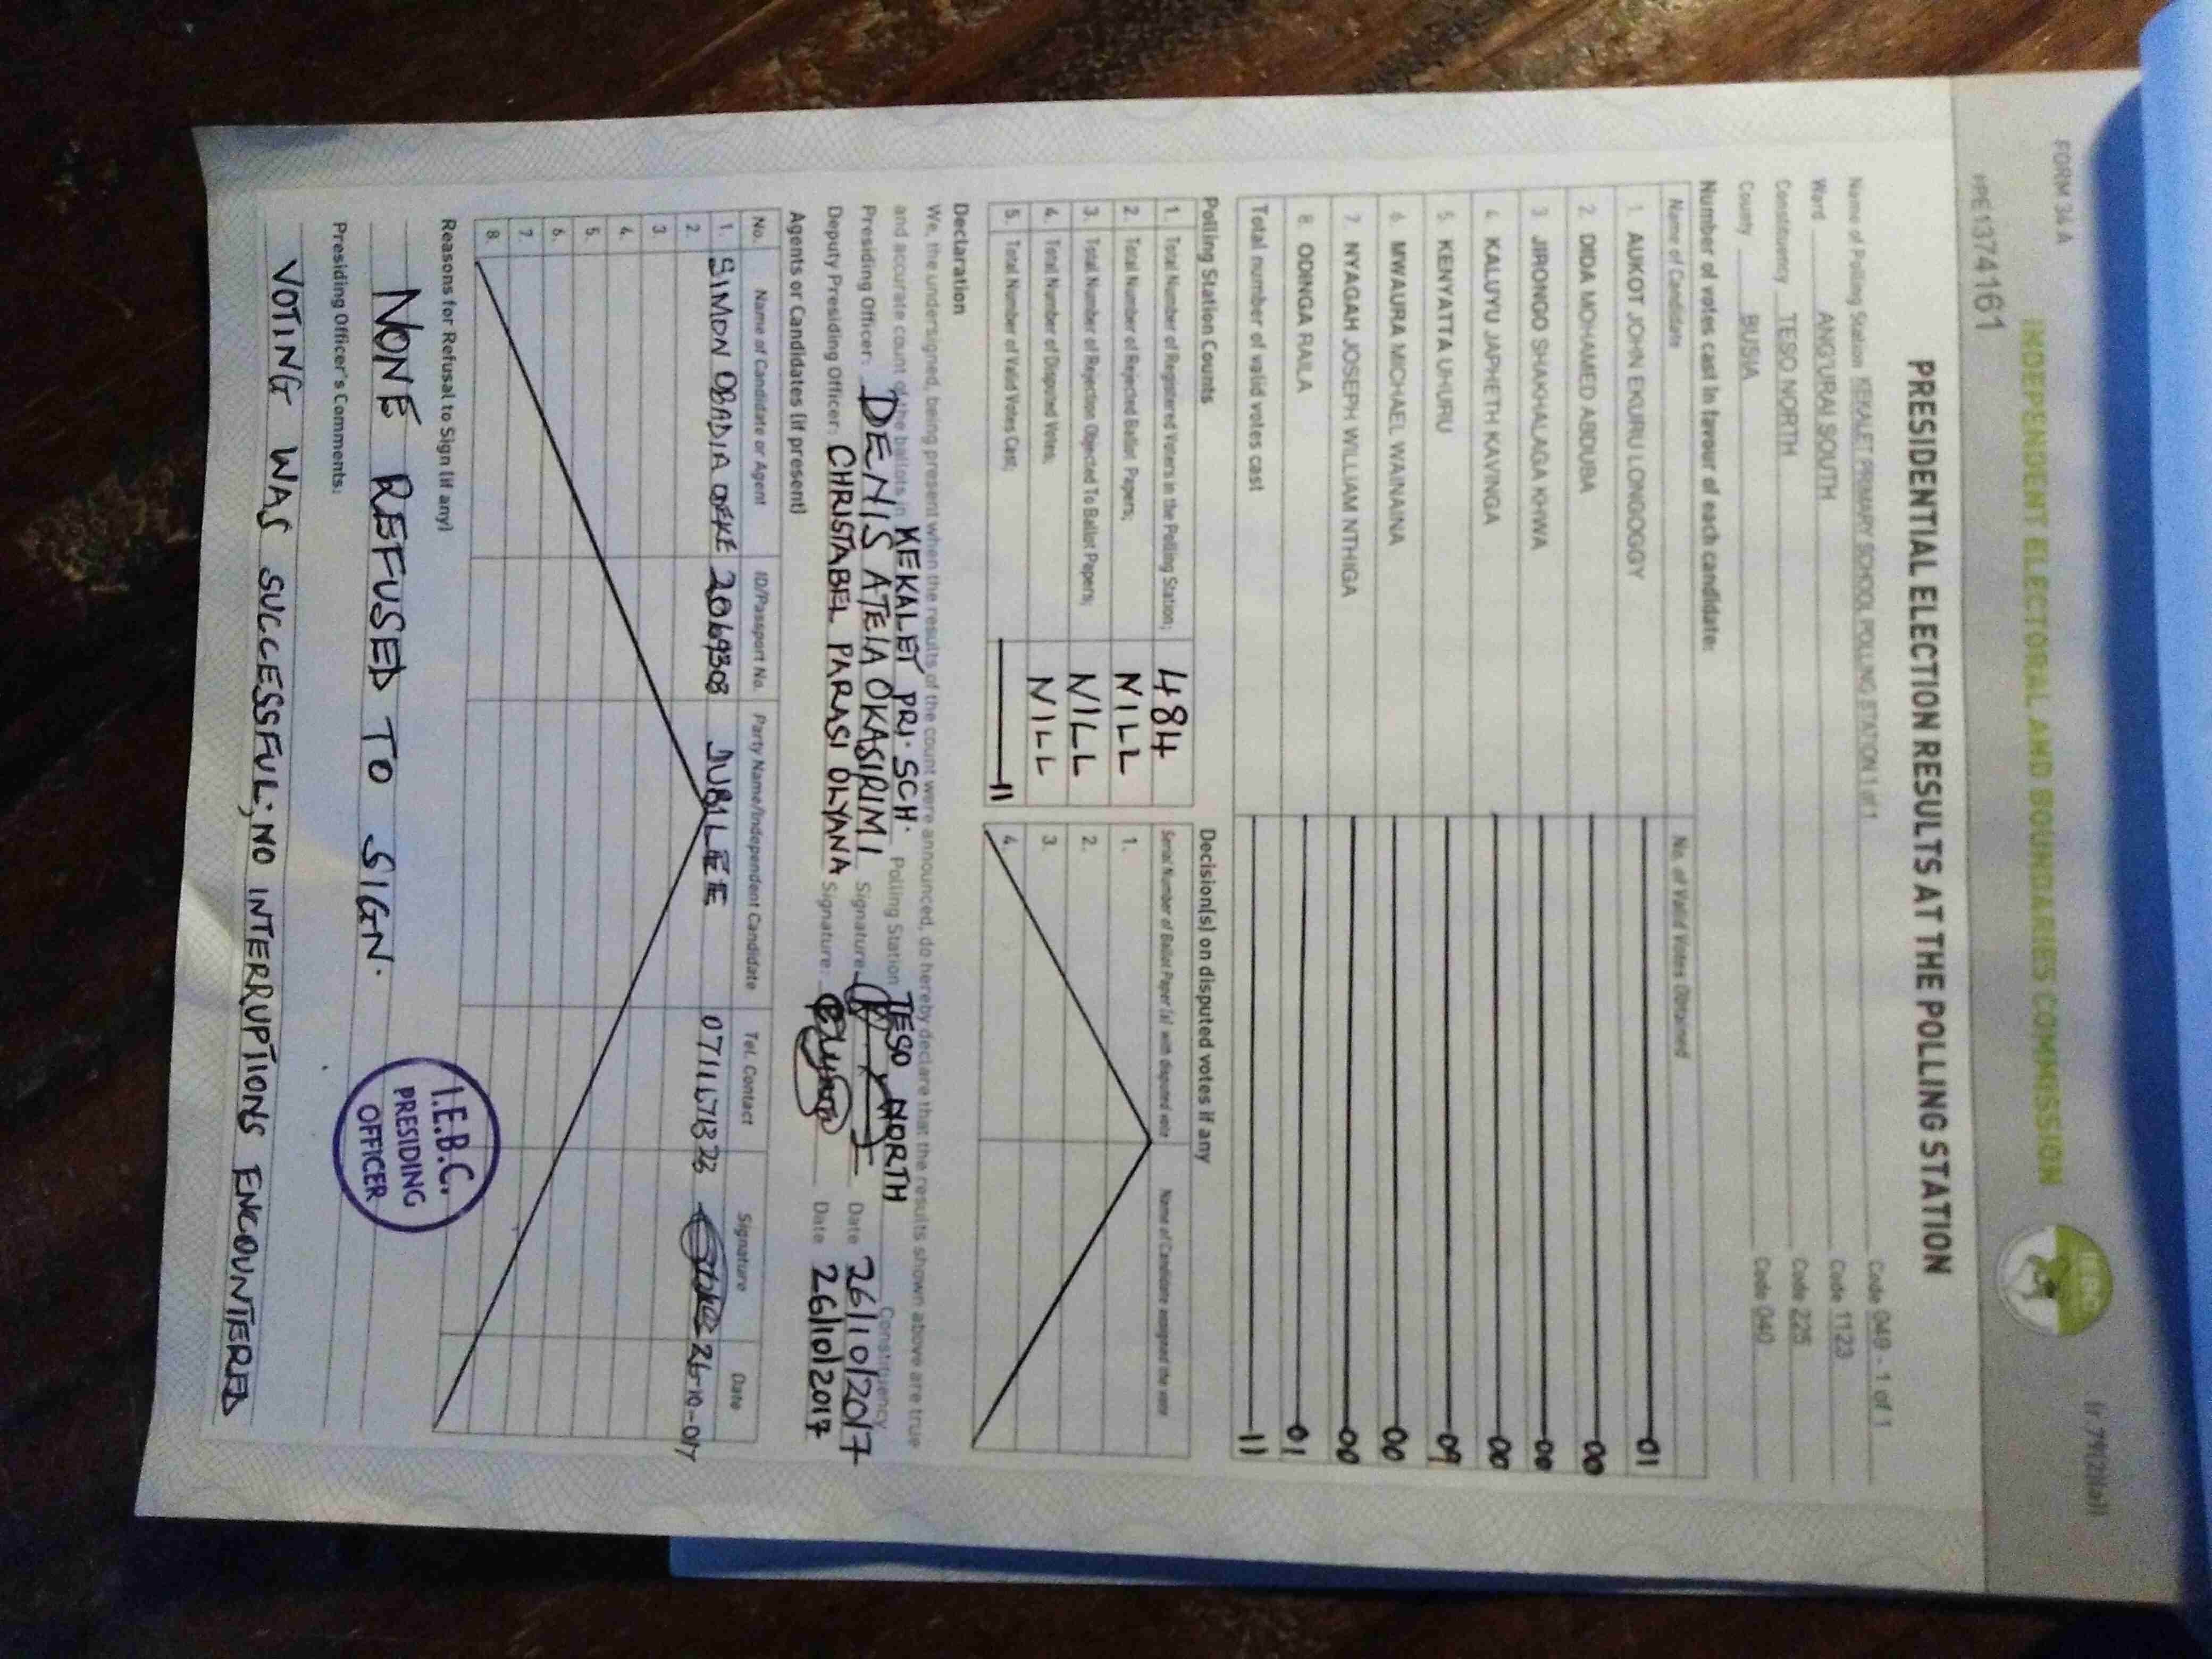 FORM 34 A
(r 79(2)(a))
INDEPENDENT ELECTORAL AND BOUNDARIES COMMISSION
IEBC
PE1374161
PRESIDENTIAL ELECTION RESULTS AT THE POLLING STATION
Name of Polling Station KEKALET PRIMARY SCHOOL POLLING STATION 1 of 1 Code 049 - 1 of 1
Ward ANG'URAI SOUTH Code 1123
Constituency TESO NORTH Code 225
County BUSIA Code 040
Number of votes cast in favour of each candidate:
Name of Candidate No. of Valid Votes Obtained
1. AUKOT JOHN EKURU LONGOGGY 01
2. DIDA MOHAMED ABDUBA 00
3. JIRONGO SHAKHALAGA KHWA 00
4. KALUYU JAPHETH KAVINGA 00
5. KENYATTA UHURU 09
6. MWAURA MICHAEL WAINAINA 00
7. NYAGAH JOSEPH WILLIAM NTHIGA 00
8. ODINGA RAILA 01
Total number of valid votes cast 11
Polling Station Counts
1. Total Number of Registered Voters in the Polling Station; 484
2. Total Number of Rejected Ballot Papers; NILL
3. Total Number of Rejection Objected To Ballot Papers; NILL
4. Total Number of Disputed Votes; NILL
5. Total Number of Valid Votes Cast; 11
Decision(s) on disputed votes if any
Serial Number of Ballot Paper (s) with disputed vote Name of Candidate assigned the vote
1.
2.
3.
4.
Declaration
We, the undersigned, being present when the results of the count were announced, do hereby declare that the results shown above are true
and accurate count of the ballots in KEKALET PRI. SCH. Polling Station TESO NORTH Constituency
Presiding Officer: DENIS ATEIA OKASIRIMI Signature: Date 26/10/2017
Deputy Presiding Officer: CHRISTABEL PARASI OLYANA Signature: Date 26/10/2017
Agents or Candidates (if present)
No. Name of Candidate or Agent ID/Passport No. Party Name/Independent Candidate Tel. Contact Signature Date
1. SIMON OBADIA 2069308 JUBILEE 26-10-017
2.
3.
4.
5.
6.
7.
8.
Reasons for Refusal to Sign (if any)
NONE REFUSED TO SIGN.
I.E.B.C.
PRESIDING
OFFICER
Presiding Officer's Comments:
VOTING WAS SUCCESSFUL; NO INTERRUPTIONS ENCOUNTERED